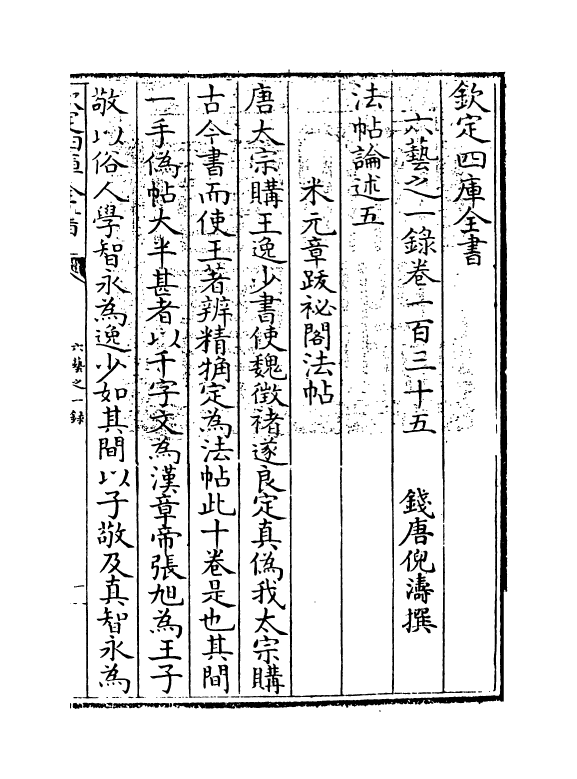 欽定四庫全書
六藝之一錄卷一百三十五　錢唐倪濤撰
法帖論述五
米元章跋祕閣法帖
唐太宗購王逸少書使魏徵褚遂良定真偽我太宗購
古今書而使王著辨精觕定為法帖此十卷是也其間
一手偽帖大半甚者以千字文為漢章帝張旭為王子
敬以俗人學智永為逸少如其間以子敬及真智永為
欽定四庫全書
六藝之一錄
一